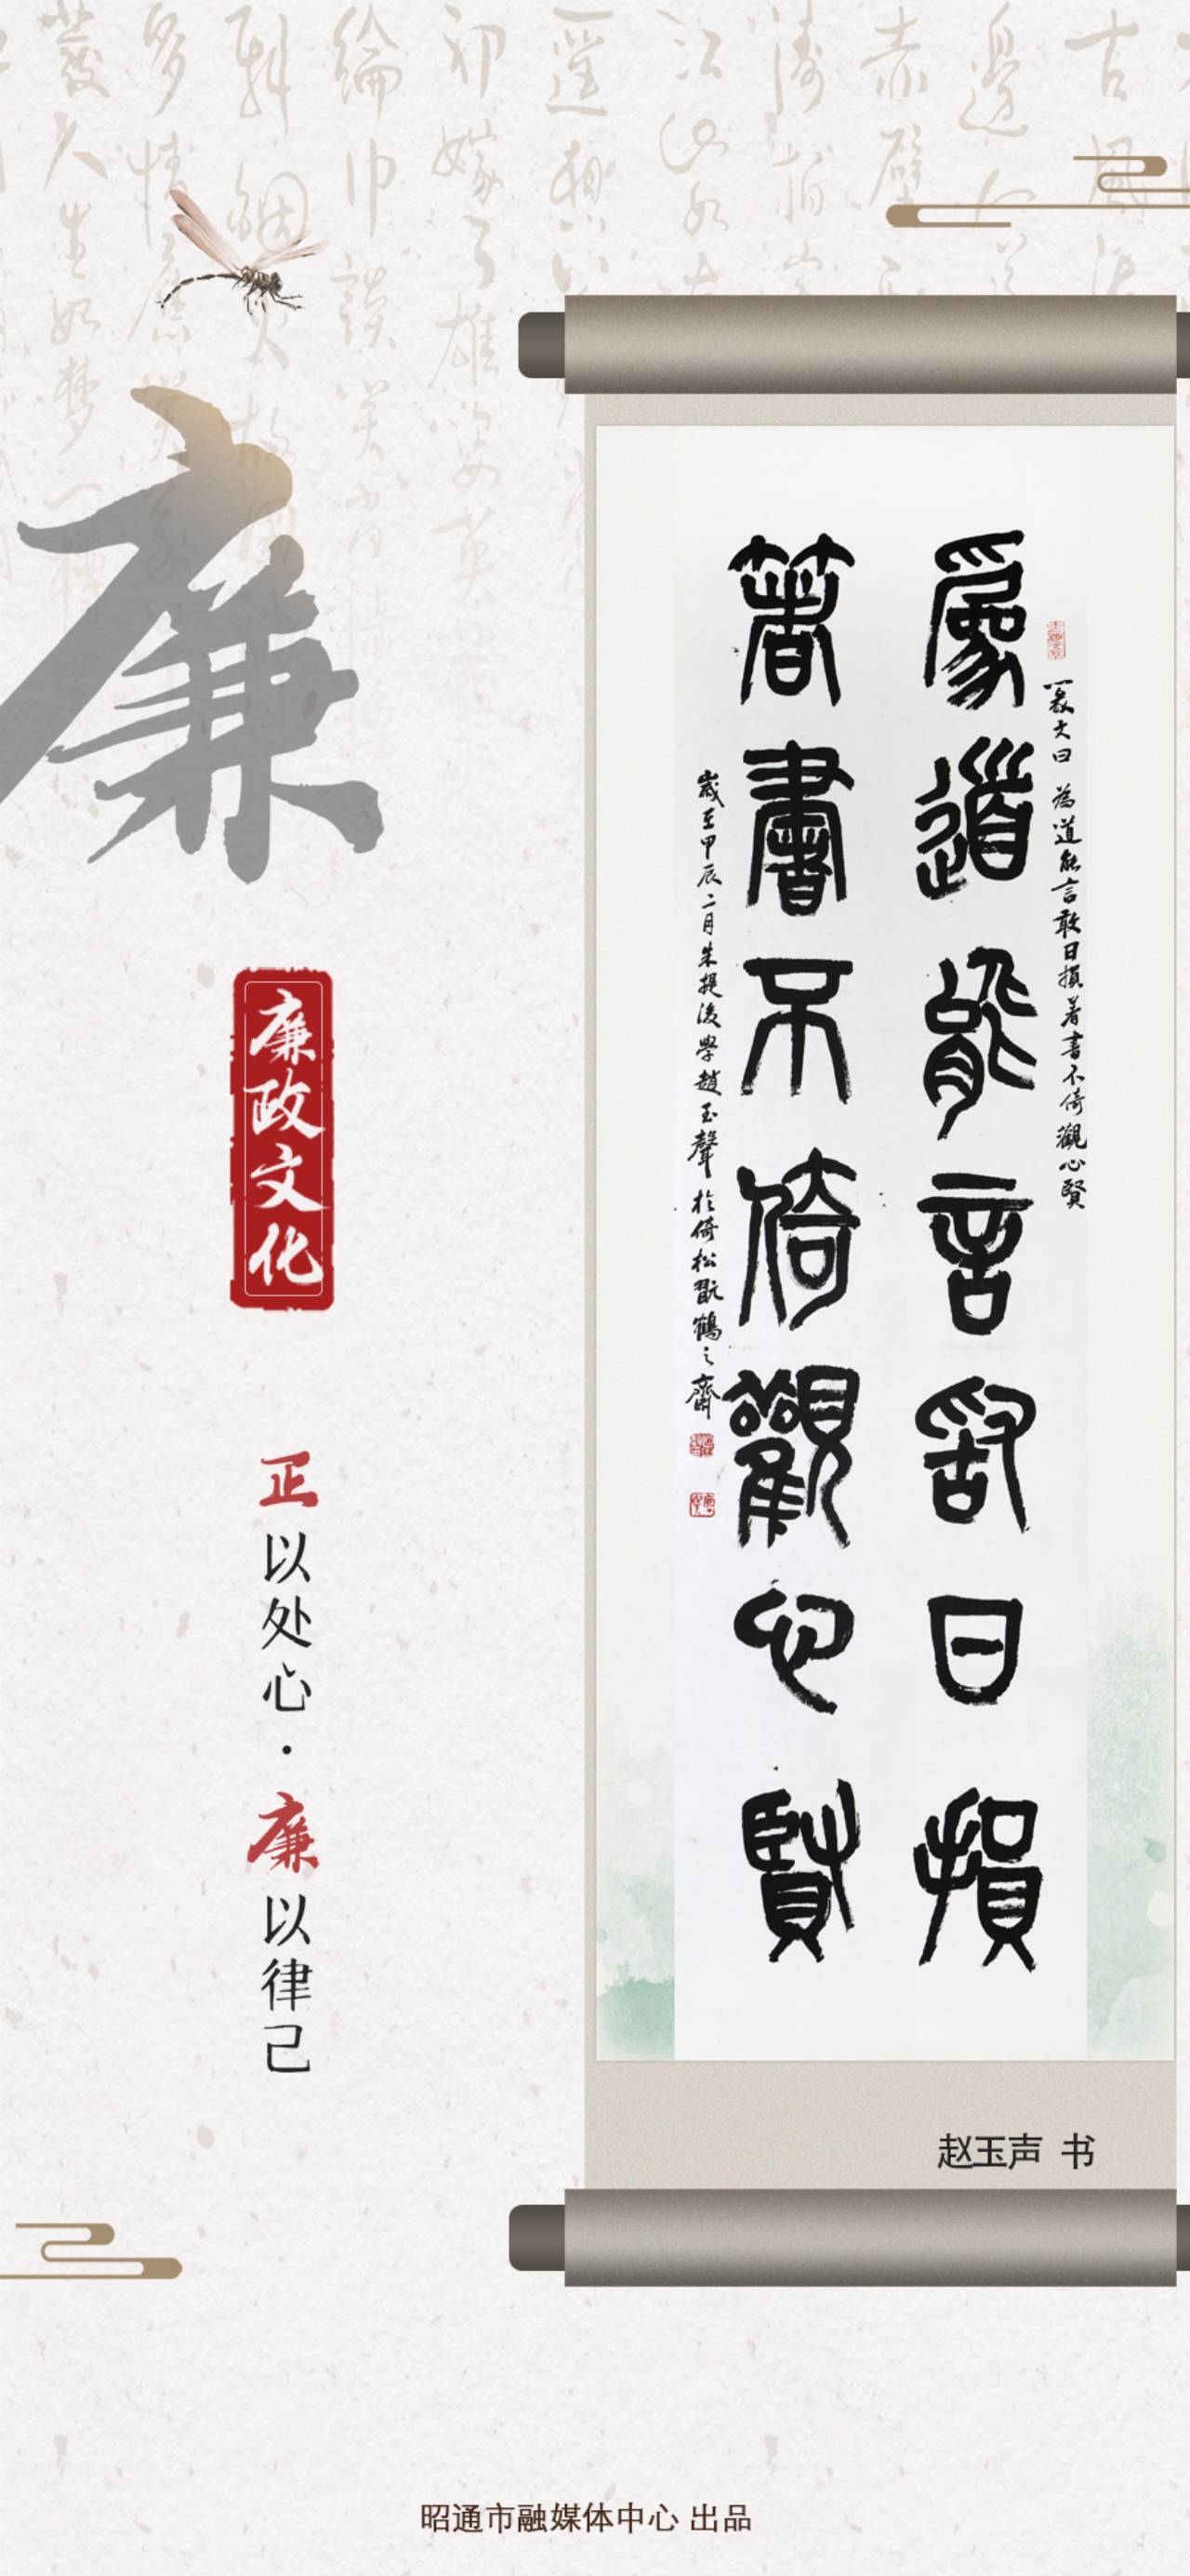 廉
廉政文化
正以处心·廉以律己
為道能言敢日損
著書不倚觀心賢
篆文曰 為道能言敢日損著書不倚觀心賢
歲在甲辰二月朱提後學趙玉聲於倚松翫鶴之齋
赵玉声 书
昭通市融媒体中心 出品